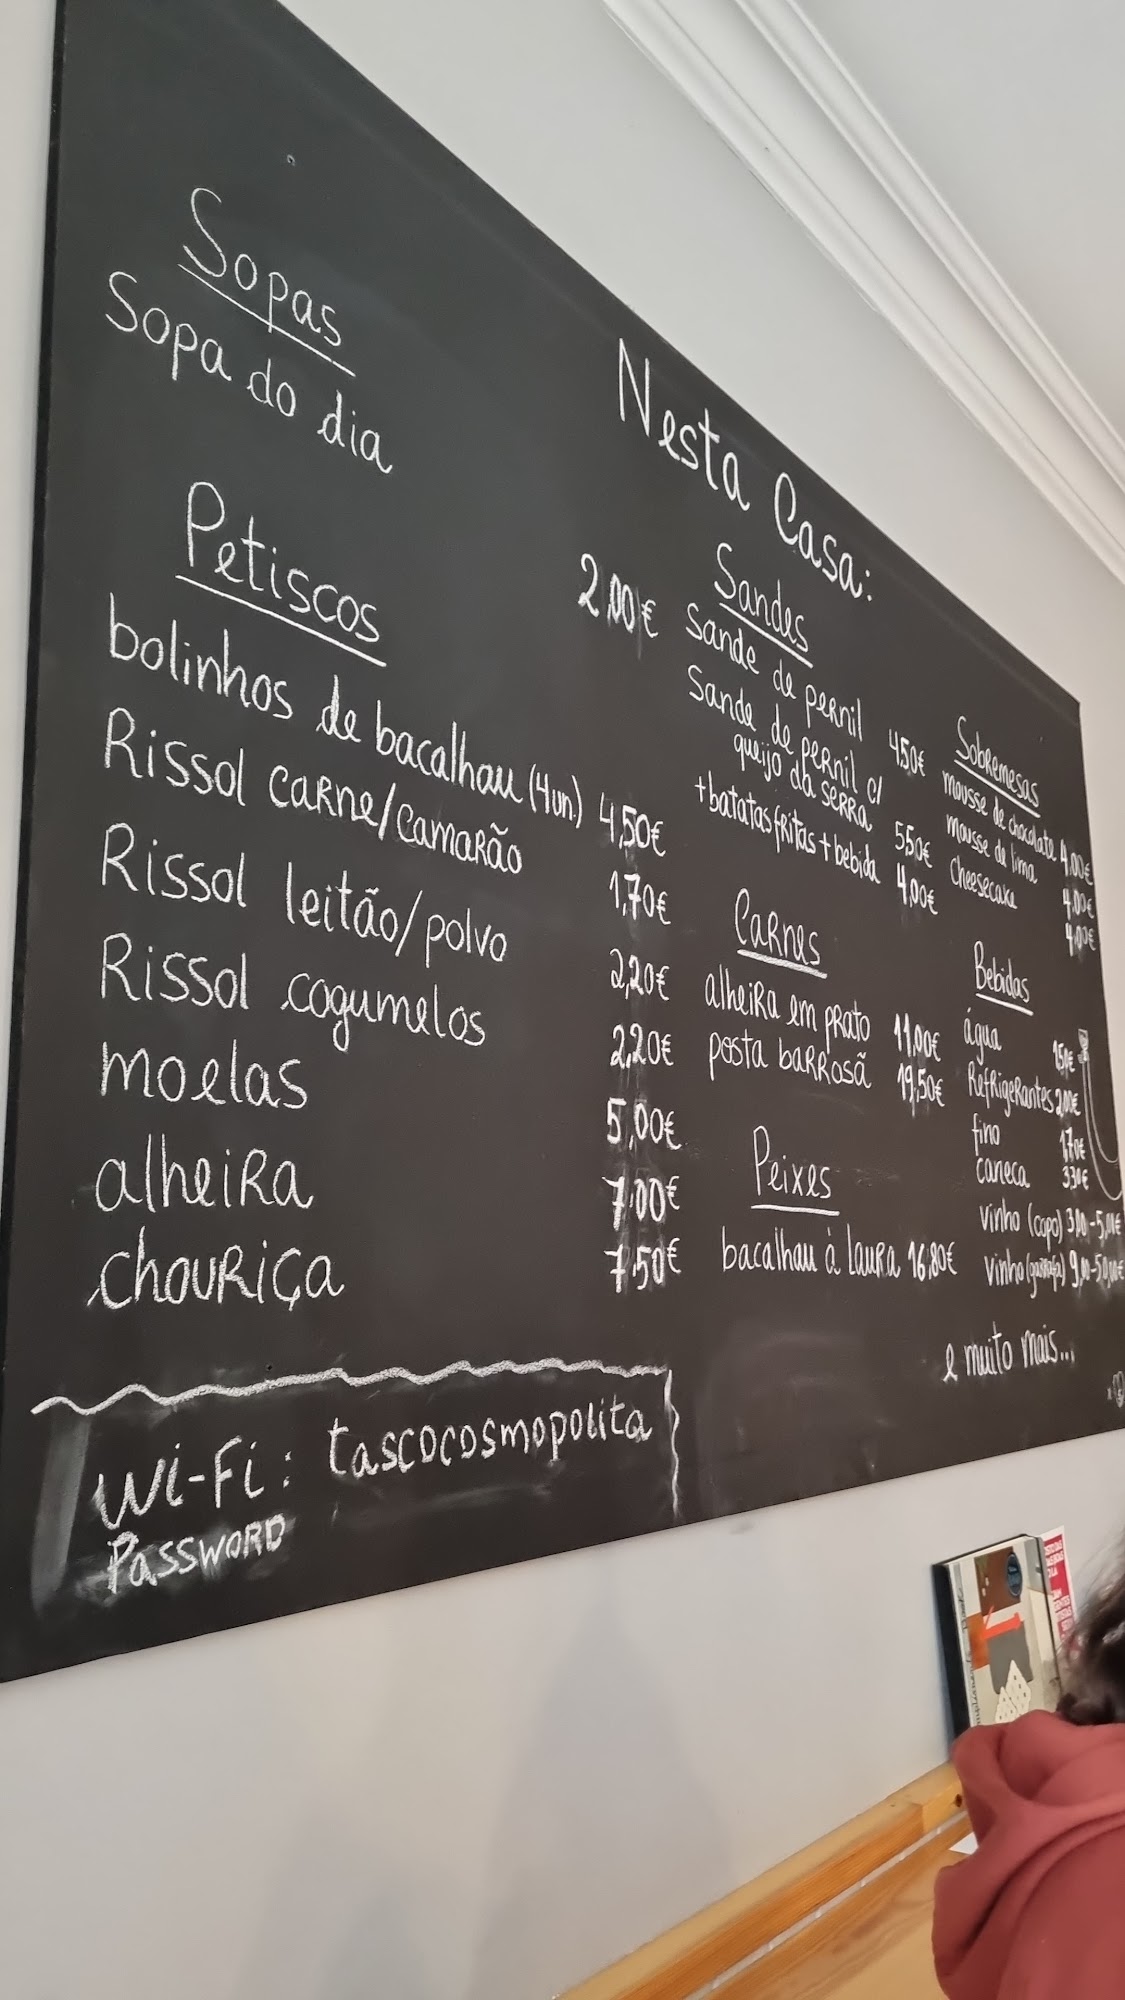 Nesta Casa:
Sopas
Sopa do dia 2,00€
Petiscos
bolinhos de bacalhau (4un.) 4,50€
Rissol carne/camarão 1,70€
Rissol leitão/polvo 2,20€
Rissol cogumelos 2,20€
moelas 5,00€
alheira 7,00€
chouriça 7,50€
Wi-Fi: tascocosmopolita
Password
Sandes
Sande de pernil 4,50€
Sande de pernil c/
queijo da serra 5,50€
+batatas fritas + bebida 4,00€
Carnes
alheira em prato 11,00€
posta barrosã 19,50€
Peixes
bacalhau à Laura 16,80€
Sobremesas
mousse de chocolate 4,00€
mousse de lima 4,00€
Cheesecake 4,00€
Bebidas
água 1,50€
Refrigerantes 2,00€
fino 1,70€
caneca 3,30€
vinho (copo) 3,00-5,00€
vinho (garrafa) 9,00-50,00€
e muito mais...